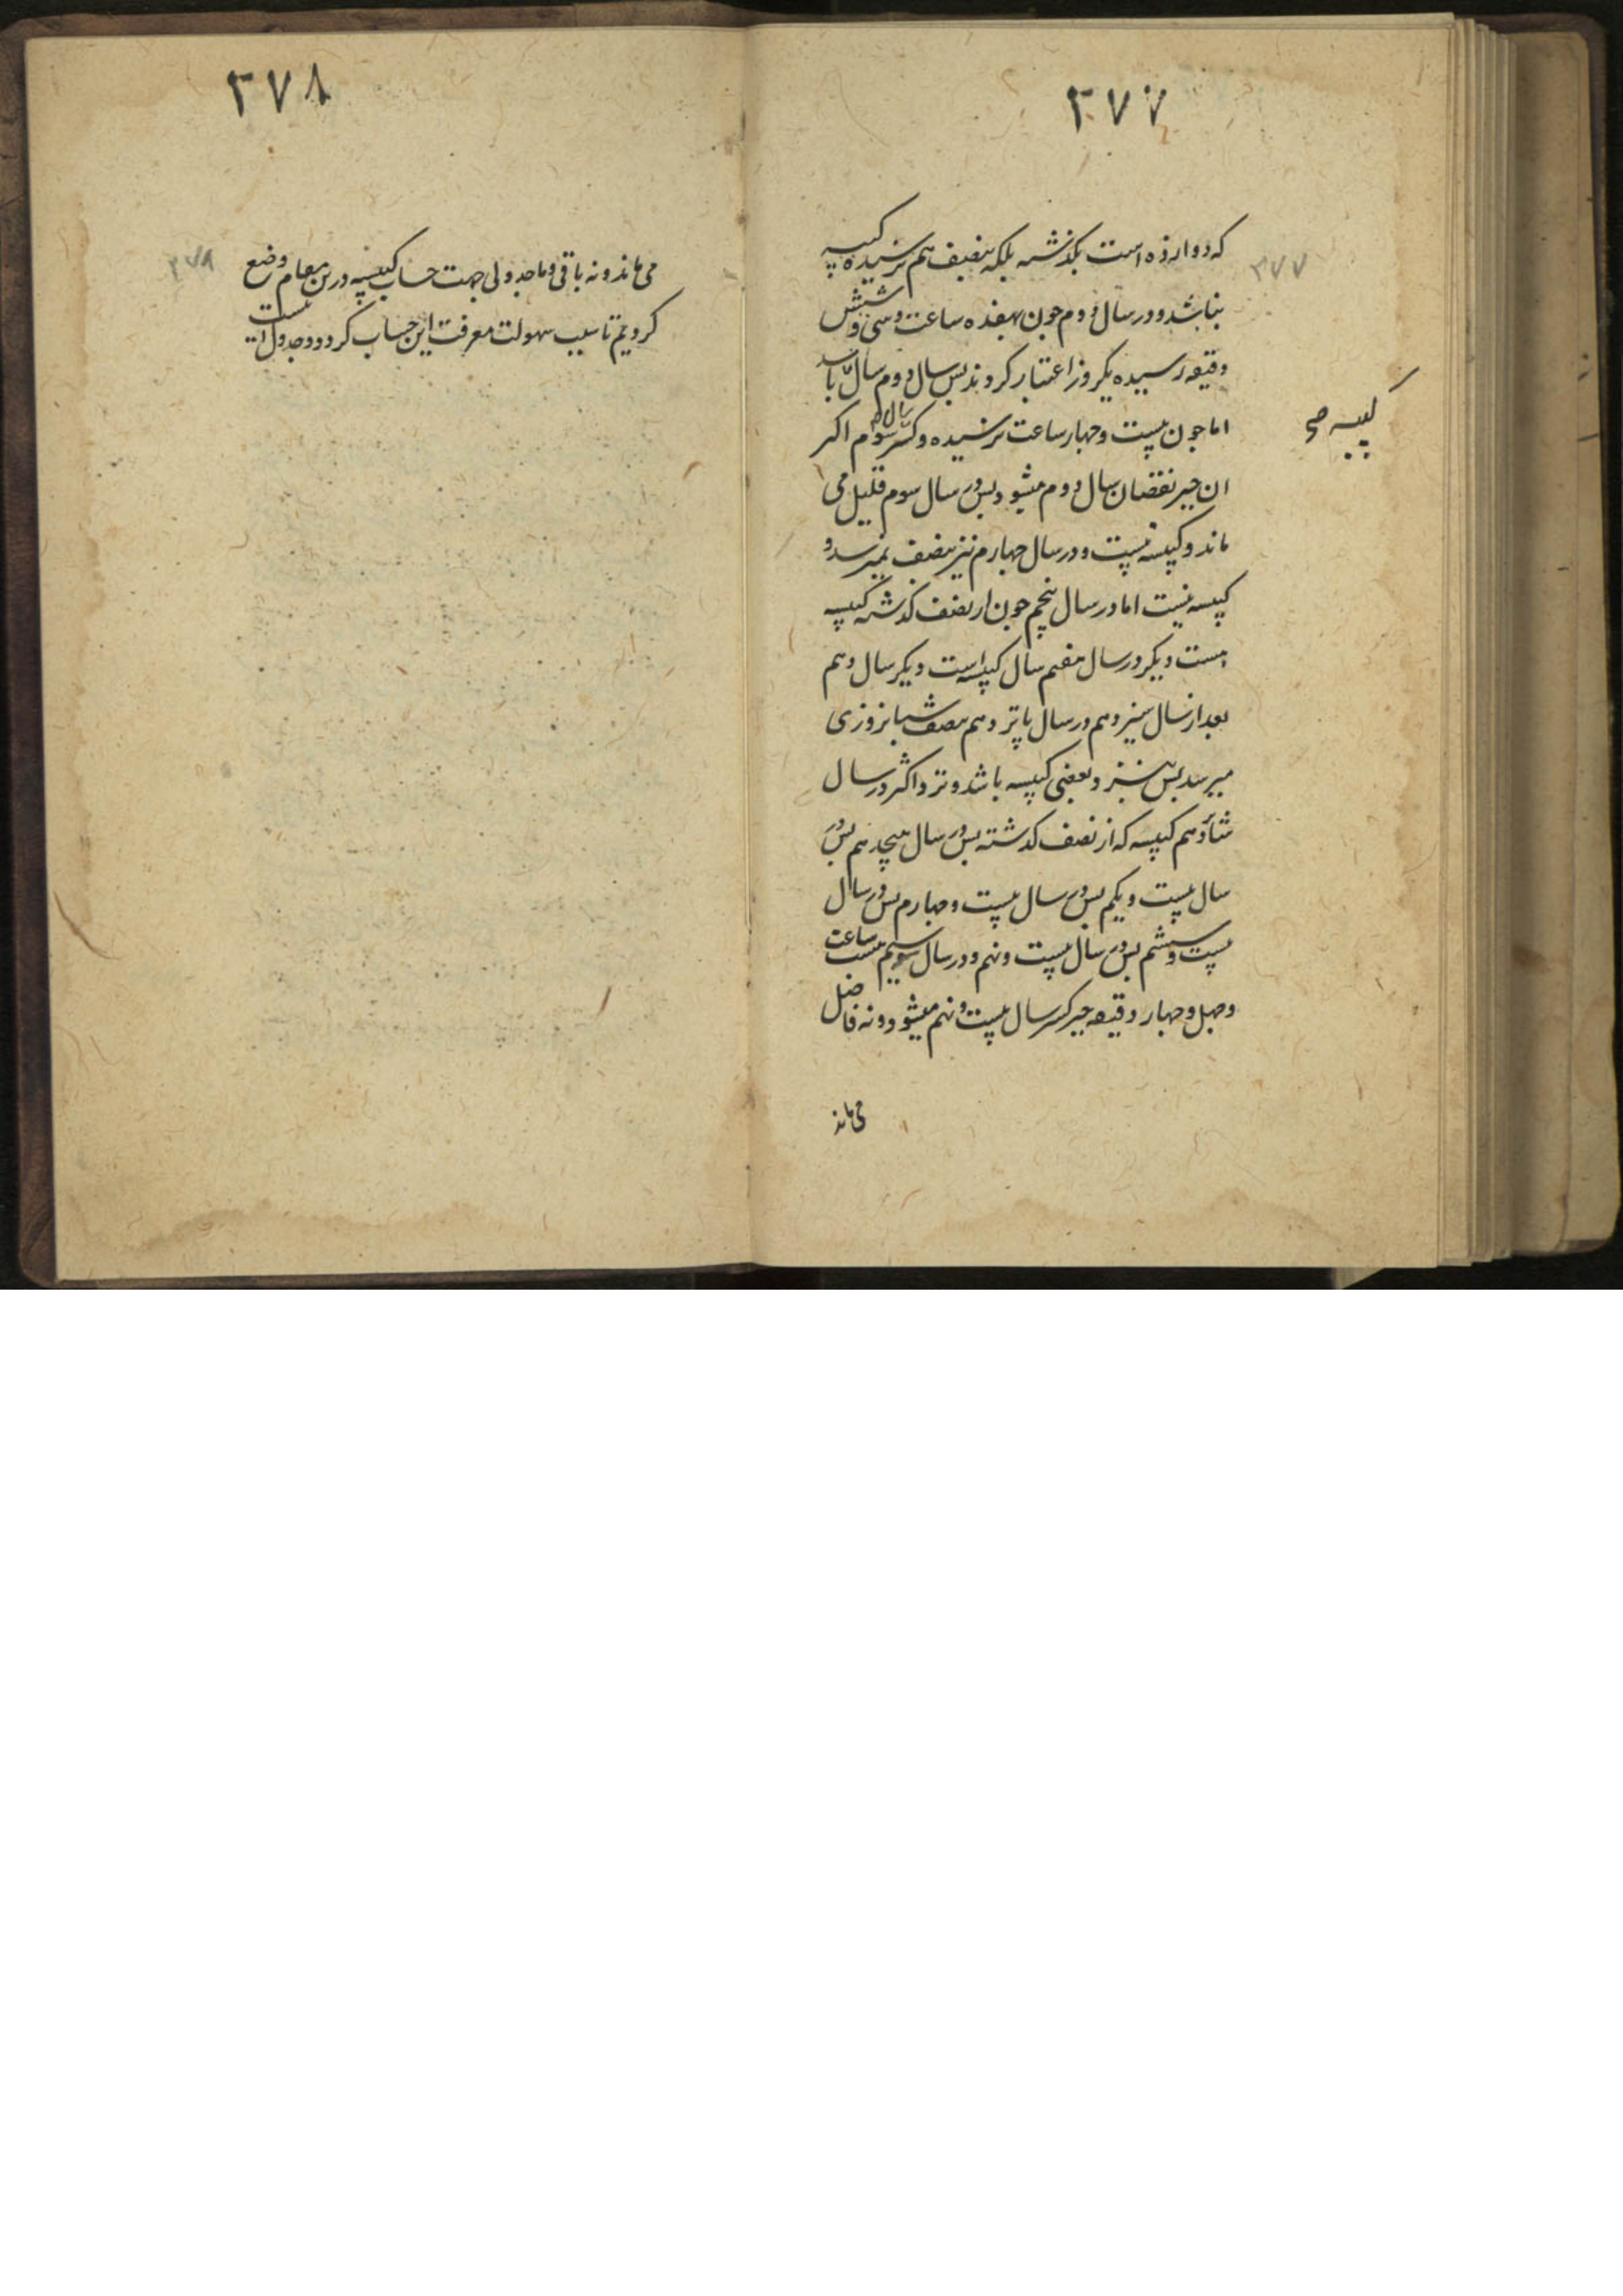 ۳۷۷
۳۷۷
که دوازده است نگذشته بلکه بنصف هم نرسیده کبیسه
نباشد و در سال دوم چون بهفده ساعت و سی و شش
دقیقه رسیده یکروز اعتبار کردند پس سال دوم سال باشد
کبیسه صح
اما چون بیست و چهار ساعت نرسیده و کسر سال سوم اکثر
ان جبر نقصان سال دوم میشود پس در سال سوم قلیل می
ماند و کبیسه نیست و در سال چهارم نیز بنصف نمیرسد و
کبیسه نیست اما در سال پنجم چون از نصف گذشته کبیسه
است دیگر در سال هفتم سال کبیسه است دیگر سال دهم
بعد از سال سیزدهم در سال پانزدهم بنصف شبانروزی
میرسد پس نزد بعضی کبیسه باشد و نزد اکثر در سال
شانزدهم کبیسه که از نصف گذشته پس در سال هیجدهم پس در
سال بیست و یکم پس در سال بیست و چهارم پس در سال
بیست و ششم پس در سال بیست و نهم و در سال سیم بیست ساعت
و چهل و چهار دقیقه جبر کسر سال بیست و نهم میشود و نه فاضل
می ماند
۳۷۸
۳۷۸
می ماند و نه باقی و ما جدولی جهت حساب کبیسه درین مقام وضع
کردیم تا سبب سهولت معرفت این حساب گردد و جدول اینست